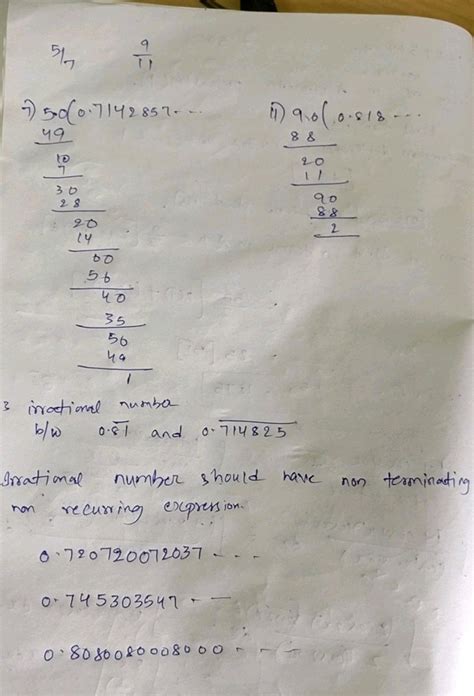 5/7 9/11
7) 50(0.7142857...
49
10
7
30
28
20
14
60
56
40
35
50
49
1
11) 9.0( 0.818...
88
20
11
90
88
2
3 irrational number
b/w 0.8̅1̅ and 0.7̅1̅4̅8̅2̅5̅
Irrational number should have non terminating
non recurring expression.
0.720720072037 - - -
0.745303547 - -
0.8080080008000 - - -